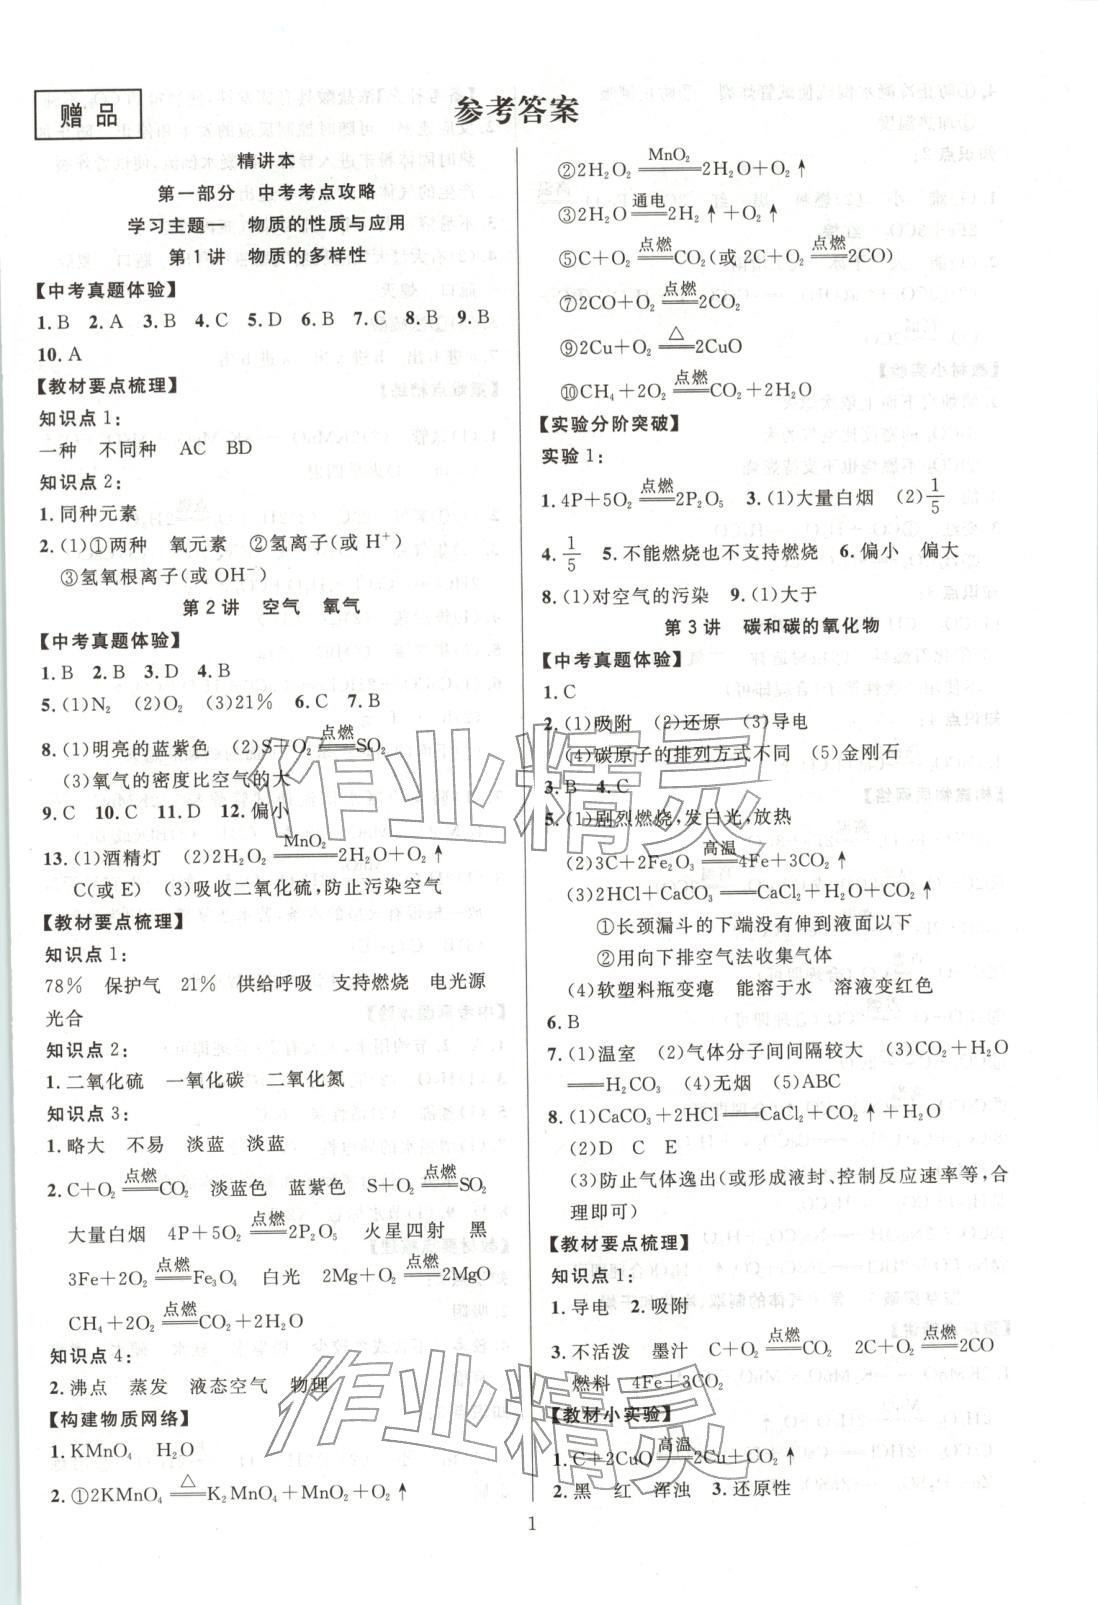 赠 品
参考答案
精讲本
第一部分 中考考点攻略
学习主题一 物质的性质与应用
第 1 讲 物质的多样性
【中考真题体验】
1. B 2. A 3. B 4. C 5. D 6. B 7. C 8. B 9. B
10. A
【教材要点梳理】
知识点 1：
一种 不同种 AC BD
知识点 2：
1. 同种元素
2. (1)①两种 氧元素 ②氢离子(或 H⁺)
③氢氧根离子(或 OH⁻)
第 2 讲 空气 氧气
【中考真题体验】
1. B 2. B 3. D 4. B
5. (1)N₂ (2)O₂ (3)21% 6. C 7. B
8. (1)明亮的蓝紫色 (2)S+O₂ ══点燃══ SO₂
(3)氧气的密度比空气的大
9. C 10. C 11. D 12. 偏小
13. (1)酒精灯 (2)2H₂O₂ ══MnO₂══ 2H₂O+O₂↑
C(或 E) (3)吸收二氧化硫,防止污染空气
【教材要点梳理】
知识点 1：
78% 保护气 21% 供给呼吸 支持燃烧 电光源
光合
知识点 2：
1. 二氧化硫 一氧化碳 二氧化氮
知识点 3：
1. 略大 不易 淡蓝 淡蓝
2. C+O₂ ══点燃══ CO₂ 淡蓝色 蓝紫色 S+O₂ ══点燃══ SO₂
大量白烟 4P+5O₂ ══点燃══ 2P₂O₅ 火星四射 黑
3Fe+2O₂ ══点燃══ Fe₃O₄ 白光 2Mg+O₂ ══点燃══ 2MgO
CH₄+2O₂ ══点燃══ CO₂+2H₂O
知识点 4：
2. 沸点 蒸发 液态空气 物理
【构建物质网络】
1. KMnO₄ H₂O
2. ①2KMnO₄ ══△══ K₂MnO₄+MnO₂+O₂↑
②2H₂O₂ ══MnO₂══ 2H₂O+O₂↑
③2H₂O ══通电══ 2H₂↑+O₂↑
⑤C+O₂ ══点燃══ CO₂(或 2C+O₂ ══点燃══ 2CO)
⑦2CO+O₂ ══点燃══ 2CO₂
⑨2Cu+O₂ ══△══ 2CuO
⑩CH₄+2O₂ ══点燃══ CO₂+2H₂O
【实验分阶突破】
实验 1：
1. 4P+5O₂ ══点燃══ 2P₂O₅ 3. (1)大量白烟 (2)1/5
4. 1/5 5. 不能燃烧也不支持燃烧 6. 偏小 偏大
8. (1)对空气的污染 9. (1)大于
第 3 讲 碳和碳的氧化物
【中考真题体验】
1. C
2. (1)吸附 (2)还原 (3)导电
(4)碳原子的排列方式不同 (5)金刚石
3. B 4. C
5. (1)剧烈燃烧,发白光,放热
(2)3C+2Fe₂O₃ ══高温══ 4Fe+3CO₂↑
(3)2HCl+CaCO₃ ══ CaCl₂+H₂O+CO₂↑
①长颈漏斗的下端没有伸到液面以下
②用向下排空气法收集气体
(4)软塑料瓶变瘪 能溶于水 溶液变红色
6. B
7. (1)温室 (2)气体分子间间隔较大 (3)CO₂+H₂O
══H₂CO₃ (4)无烟 (5)ABC
8. (1)CaCO₃+2HCl ══ CaCl₂+CO₂↑+H₂O
(2)D C E
(3)防止气体逸出(或形成液封、控制反应速率等,合
理即可)
【教材要点梳理】
知识点 1：
1. 导电 2. 吸附
3. 不活泼 墨汁 C+O₂ ══点燃══ CO₂ 2C+O₂ ══点燃══ 2CO
燃料 4Fe+3CO₂
【教材小实验】
1. C+2CuO ══高温══ 2Cu+CO₂↑
2. 黑 红 浑浊 3. 还原性
1
作业精灵
作业精灵